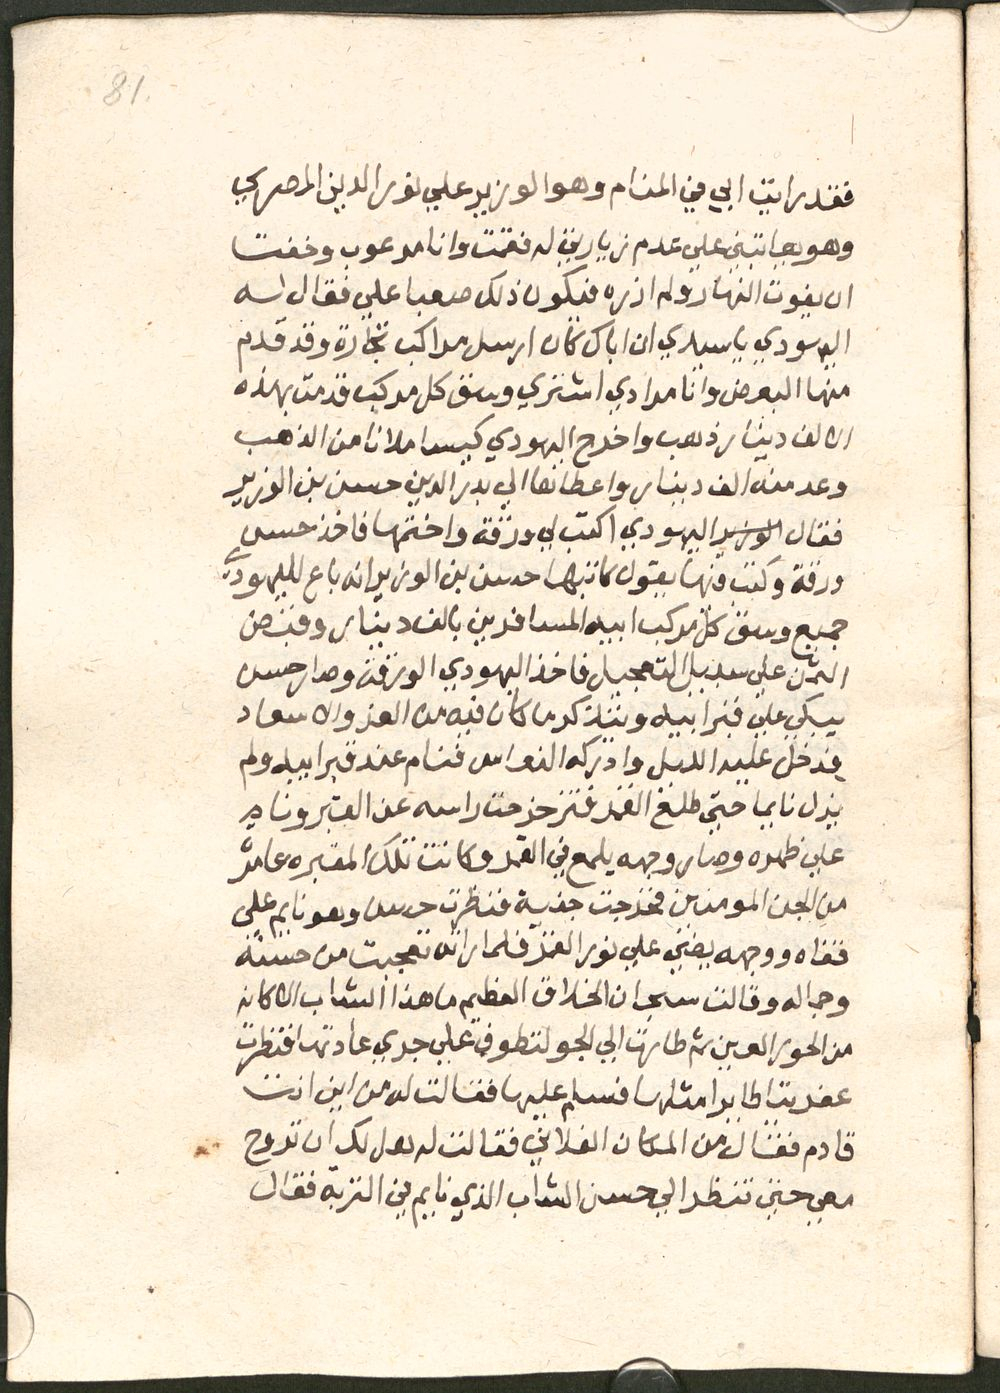 81.
فقد رايت ابي في المنام وهو الوزير علي نور الدين المصري
وهو يعاتبني علي عدم زيارتي له فقمت وانا مرعوب وخفت
ان يفوت النهار ولم ازره فيكون ذلك صعبا علي فقال له
اليهودي يا سيدي ان اباك كان ارسل مراكب تجارة وقد قدم
منها البعض وانا مرادي اشتري وسق كل مركب قدمت بهذه
الالف دينار ذهب واخرج اليهودي كيسا ملانا من الذهب
وعد منه الف دينار واعطاها الي بدر الدين حسن بن الوزير
فقال اليهودي اكتب لي ورقة واختمها فاخذ حسن
ورقة وكتب فيها يقول كاتبها حسن بن الوزير انه باع لليهودي
جميع وسق كل مركب ابيه المسافرين بالف دينار وقبض
الثمن علي سبيل التعجيل فاخذ اليهودي الورقة وصار حسن
يبكي علي قبر ابيه ويتذكر ما كان فيه من العز والاسعاد
فدخل عليه الليل وادركه النعاس فنام عند قبر ابيه ولم
يزل نايما حتي طلع القمر فتزحزحت راسه عن القبر ونام
علي ظهره وصار وجهه يلمع في القمر وكانت تلك المقبره عامرة
من الجن المومنين فخرجت جنية فنظرت حسن وهو نايم علي
قفاه ووجهه يضي علي نور القمر فلما راته تعجبت من حسنه
وجماله وقالت سبحان الخلاق العظيم ما هذا الشاب الا كانه
من الحور العين ثم طارت الي الجو لتطوف علي جري عادتها فنظرت
عفريتا طايرا مثلها فسلم عليها فقالت له من اين انت
قادم فقال من المكان الفلاني فقالت له هل لك ان تروح
معي حتي تنظر الي حسن الشاب الذي نايم في التربة فقال